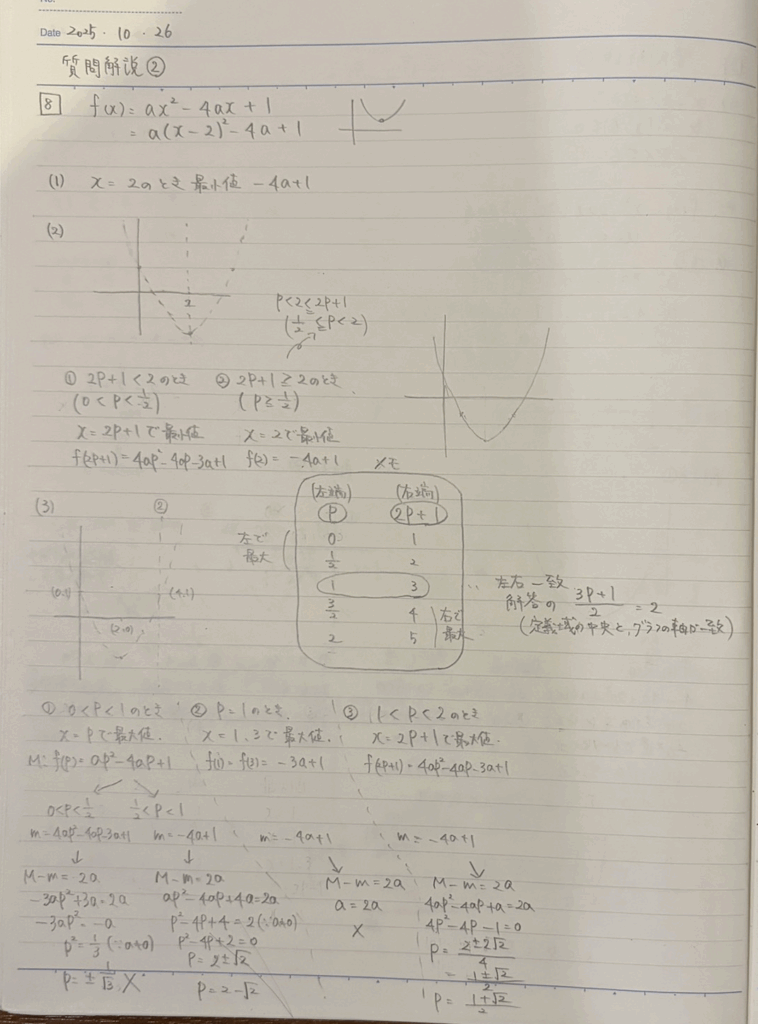 No.
Date 2025・10・26
質問解説②
8 f(x) = ax² - 4ax + 1
= a(x-2)² - 4a + 1
(1) x = 2のとき 最小値 -4a+1
(2)
2
P<2≦2P+1
(1/2 ≦P<2)
① 2P+1<2のとき ② 2P+1≧2のとき
(0<P<1/2) (P≧1/2)
x=2P+1で最小値 x=2で最小値
f(2P+1)=4ap²-4ap-3a+1 f(2)= -4a+1
メモ
(左端) (右端)
P 2P+1
0 1
1/2 2
1 3
3/2 4
2 5
左で最大
右で最大
∴ 左右一致
解答の 3P+1/2 = 2
(定義域の中央と、グラフの軸が一致)
(3) ②
(0,1) (4,1)
① 0<P<1のとき ② P=1のとき. ③ 1<P<2のとき
x=Pで最大値. x=1,3で最大値. x=2P+1で最大値.
M: f(P)=ap²-4ap+1 f(1)=f(3)=-3a+1 f(2p+1)=4ap²-4ap-3a+1
0<P<1/2 1/2<P<1
m=4ap²-4ap-3a+1 m=-4a+1 m=-4a+1 m=-4a+1
↓ ↓ ↘ ↘
M-m=2a M-m=2a M-m=2a M-m=2a
-3ap²+3a=2a ap²-4ap+4a=2a a=2a 4ap²-4ap+a=2a
-3ap²=-a p²-4p+4=2(∵a≠0) × 4p²-4p-1=0
p²=1/3 (∵a≠0) p²-4p+2=0 P=2±2√2/4
P=±1/√3 × P=2±√2 =1±√2/2
P=2-√2 P=1+√2/2